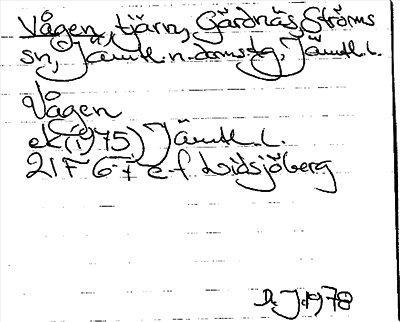 Vågen, tjärn, Gärdnäs, Ströms
sn, Jämtl. n. doms-tg, Jämtl. l.
Vågen
ek (1975) Jämtl. l.
21F 6-7 e-f Lidsjöberg
D. J. 1978